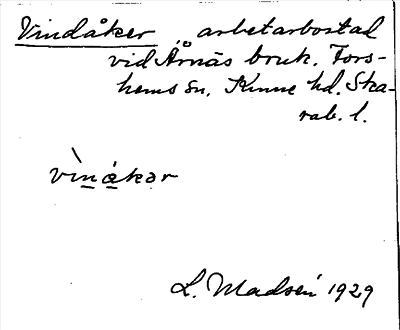 Vindåker, arbetarbostad
vid Årnäs bruk. Fors-
hems sn. Kinne hd. Ska-
rab. l.
vìnåkər
L. Madsén 1929